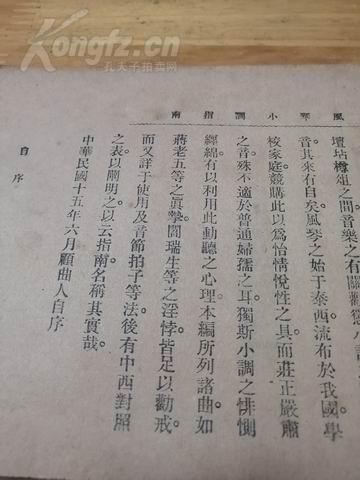 Kongfz.cn
孔夫子拍卖网
風琴小調指南
壇坫樽俎之間。音樂之有關
音。其來有自矣。風琴之始于泰西。流布於我國。學
校家庭。競購此以爲怡情悅性之具。而莊正嚴肅
之音。殊不適於普通婦孺之耳。獨斯小調之悱惻
纏綿。有以利用此動聽之心理。本編所列諸曲。如
蔣老五等之眞摯。閻瑞生等之淫悖。皆足以勸戒。
而又詳于使用及音節拍子等法。後有中西對照
之表以闡明之。以云指南。名稱其實哉。
中華民國十五年六月顧曲人自序
自序